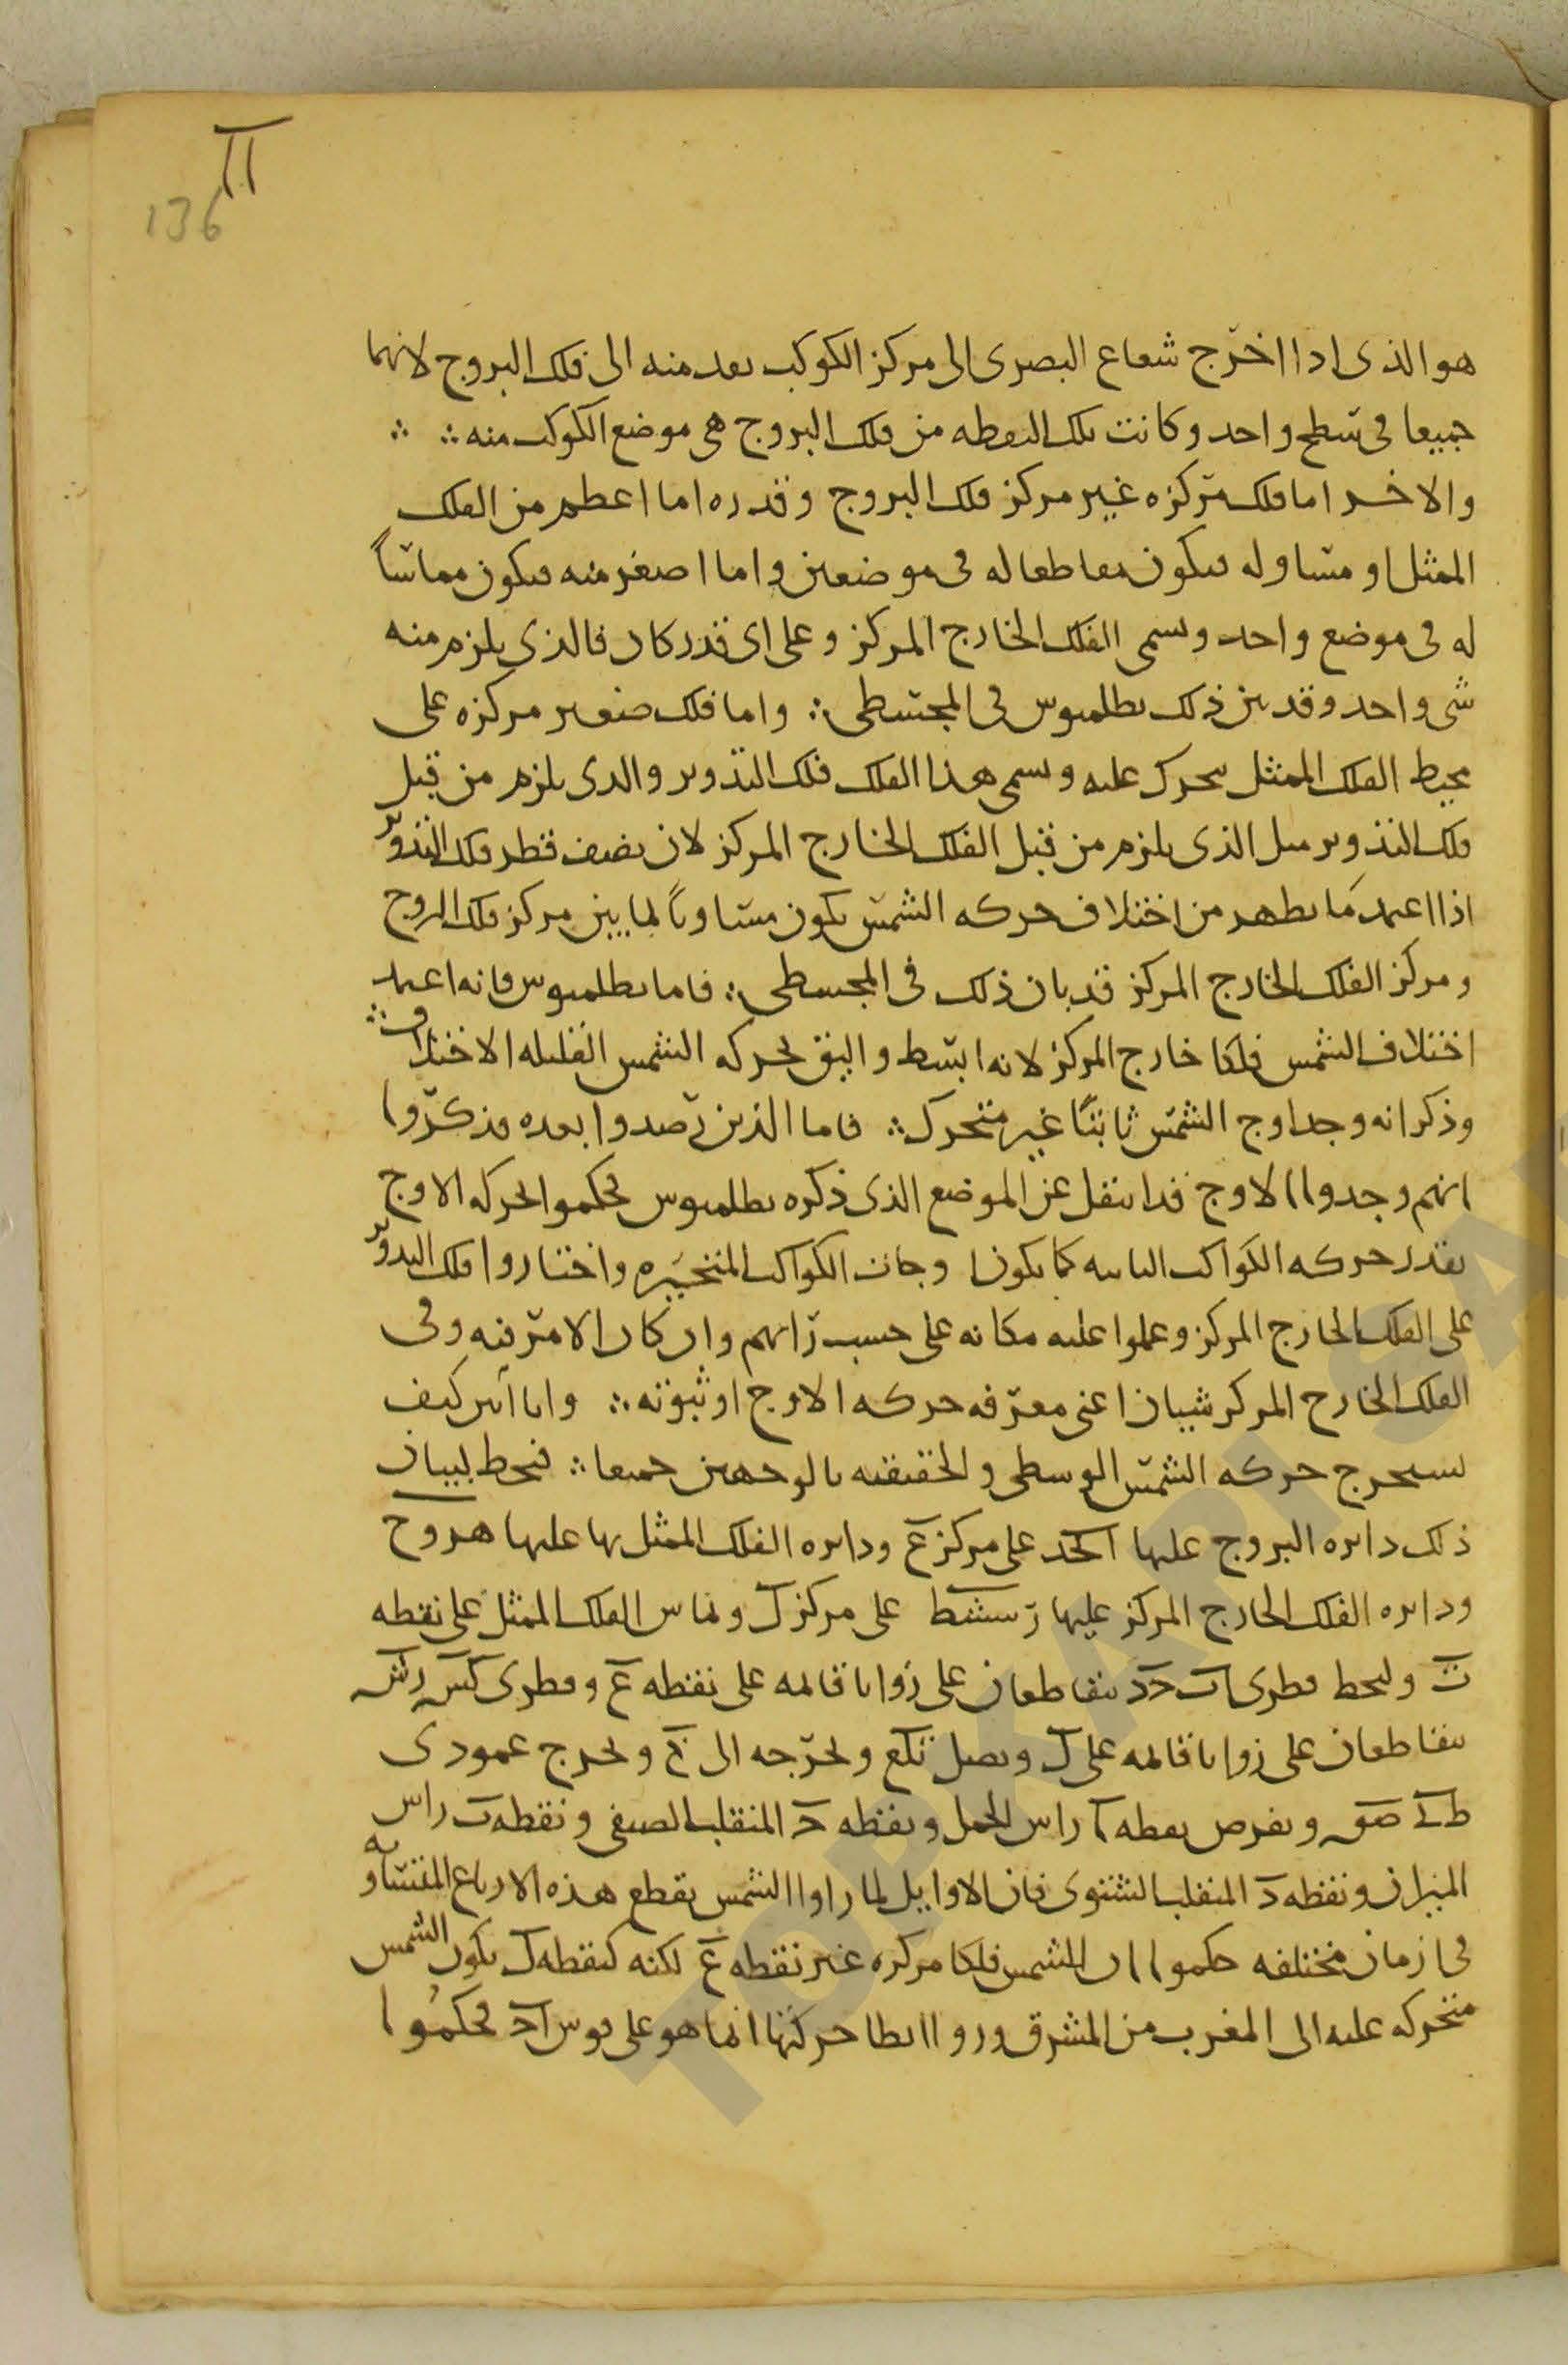 136
هو الذى اذا اخرج شعاع البصرى الى مركز الكوكب بعد منه الى فلك البروج لانهما
جميعا فى سطح واحد وكانت تلك النقطه من فلك البروج هى موضع الكوكب منه ؞ ؞
والاخر اما فلك مركزه غير مركز فلك البروج وقدره اما اعظم من الفلك
الممثل او مساو له فيكون مقاطعا له فى موضعين واما اصغر منه فيكون مماسا
له فى موضع واحد ويسمى الفلك الخارج المركز وعلى اى قدر كان فالذى يلزم منه
شى واحد وقد بين ذلك بطلميوس فى المجسطى ؞ واما فلك صغير مركزه على
محيط الفلك الممثل يتحرك عليه ويسمى هذا الفلك فلك التدوير والذى يلزم من قبل
فلك التدوير مثل الذى يلزم من قبل الفلك الخارج المركز لان نصف قطر فلك التدوير
اذا اعتمد ما يظهر من اختلاف حركه الشمس يكون مساويا لما بين مركز فلك البروج
ومركز الفلك الخارج المركز قد بان ذلك فى المجسطى ؞ فاما بطلميوس فانه اعتمد
اختلاف الشمس فلكا خارج المركز لانه ابسط واليق لحركه الشمس القليله الاختلاف ؞
وذكر انه وجد اوج الشمس ثابتا غير متحرك ؞ فاما الذين رصدوا بعده فذكروا
انهم وجدوا الاوج قد انتقل عن الموضع الذى ذكره بطلميوس فحكموا لحركه الاوج
بقدر حركه الكواكب الثابته كما يكون اوجات الكواكب المتحيره واختاروا فلك التدوير
على الفلك الخارج المركز وعملوا عليه مكانه على حسب رايهم وان كان الامر فيه وفى
الفلك الخارج المركز شيان اعنى معرفه حركه الاوج او ثبوته ؞ وانا ابين كيف
نستخرج حركه الشمس الوسطى والحقيقيه بالوجهين جميعا ؞ فنخط لبيان
ذلك دايره البروج عليها ا ج ب د على مركز ع ودايره الفلك الممثل بها عليها ه ر و ح
ودايره الفلك الخارج المركز عليها على مركز ك وتماس الفلك الممثل على نقطه
ت ولنخط قطرى ا ب ج د يتقاطعان على زوايا قائمه على نقطه ع وقطرى
يتقاطعان على زوايا قائمه على ك ونصل ت ك ع ونخرجه الى خ ونخرج عمودى
ونفرض نقطه ا راس الحمل ونقطه ج المنقلب الصيفى ونقطه ب راس
الميزان ونقطه د المنقلب الشتوى فان الاوايل لما راوا الشمس تقطع هذه الارباع المتساويه
فى ازمان مختلفه حكموا ان للشمس فلكا مركزه غير نقطه ع لكنه كنقطه ك يكون الشمس
متحركه عليه الى المغرب من المشرق وراوا ابطا حركتها انما هو على قوس ا ج فحكموا